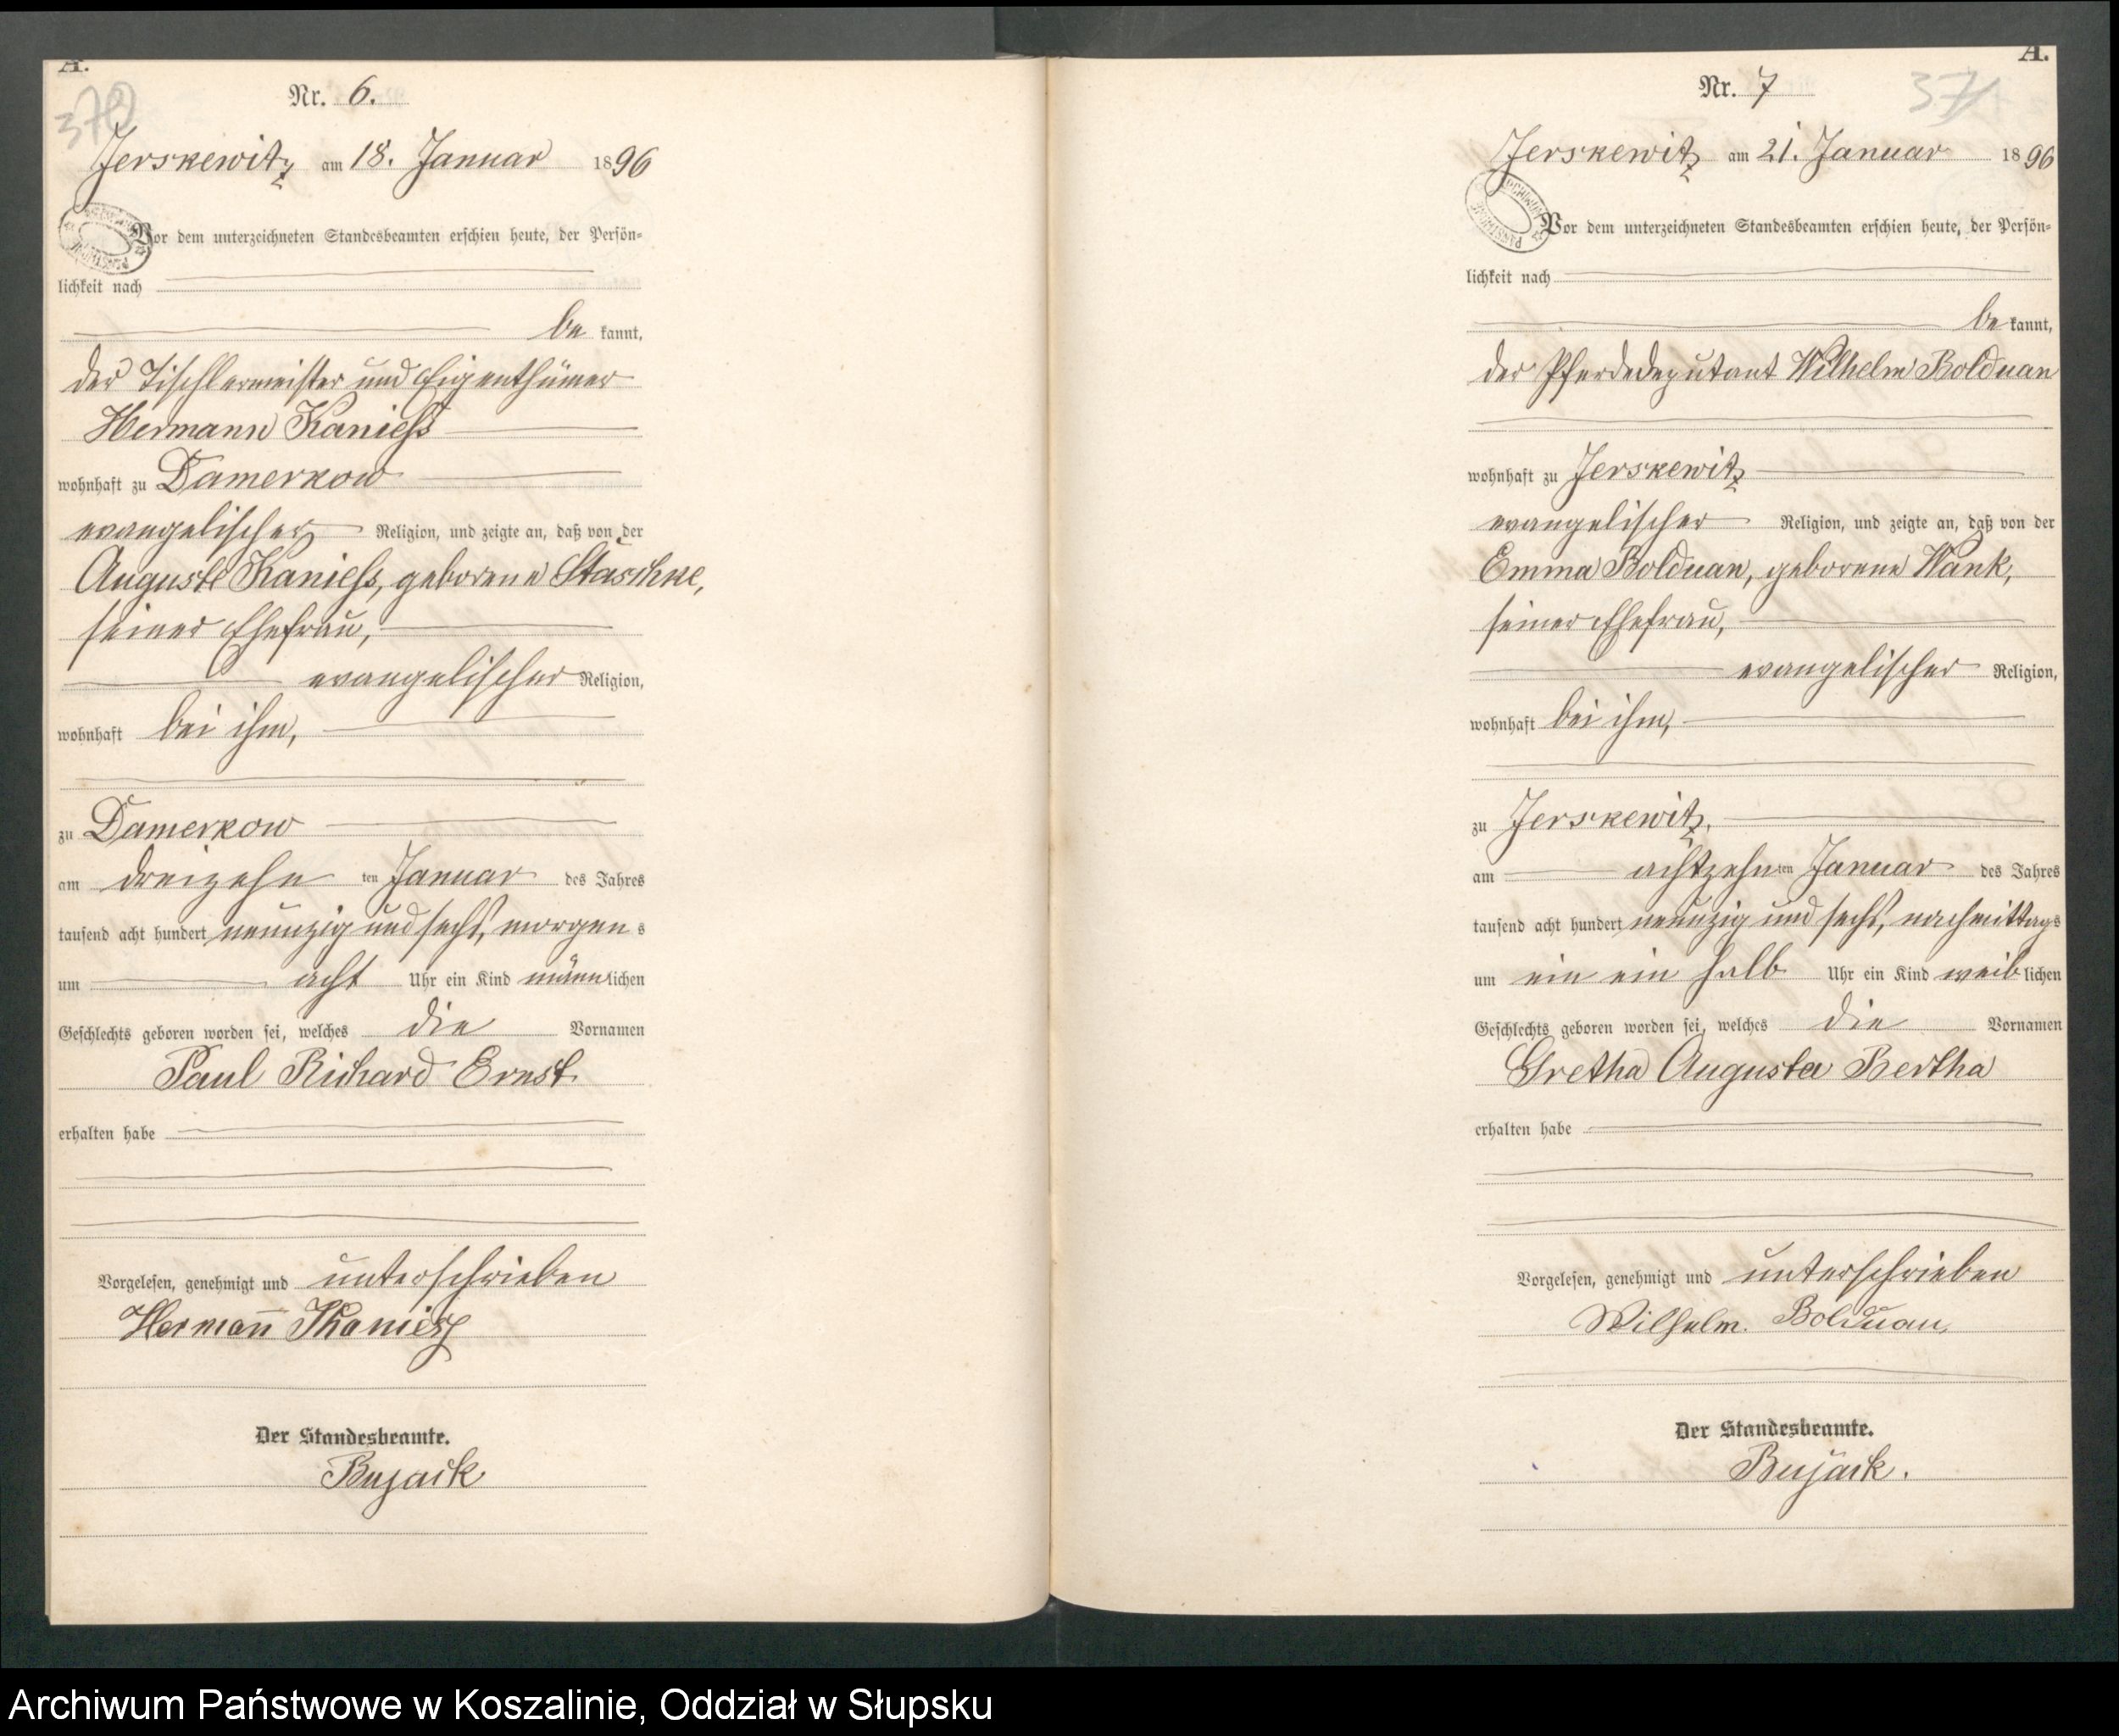 A.
370
Nr. 6.
Jerskewitz am 18. Januar 1896
Vor dem unterzeichneten Standesbeamten erschien heute, der Persön-
lichkeit nach
be kannt,
der Tischlermeister und Eigenthümer
Hermann Kaniess
wohnhaft zu Damerkow
evangelischer Religion, und zeigte an, daß von der
Auguste Kaniess, geborene Staschke,
seiner Ehefrau,
evangelischer Religion,
wohnhaft bei ihm,
zu Damerkow
am dreizehn ten Januar des Jahres
tausend acht hundert neunzig und sechs, morgen s
um acht Uhr ein Kind männlichen
Geschlechts geboren worden sei, welches die Vornamen
Paul Richard Ernst
erhalten habe
Vorgelesen, genehmigt und unterschrieben
Hermann Kaniess
Der Standesbeamte.
Bujack
A.
371
Nr. 7
Jerskewitz am 21. Januar 1896
Vor dem unterzeichneten Standesbeamten erschien heute, der Persön-
lichkeit nach
be kannt,
der Pferdedeputant Wilhelm Bolduan
wohnhaft zu Jerskewitz
evangelischer Religion, und zeigte an, daß von der
Emma Bolduan, geborene Wank,
seiner Ehefrau,
evangelischer Religion,
wohnhaft bei ihm,
zu Jerskewitz,
am achtzehn ten Januar des Jahres
tausend acht hundert neunzig und sechs, nachmittags
um ein ein halb Uhr ein Kind weiblichen
Geschlechts geboren worden sei, welches die Vornamen
Gretha Augusta Bertha
erhalten habe
Vorgelesen, genehmigt und unterschrieben
Wilhelm. Bolduan,
Der Standesbeamte.
Bujack.
Archiwum Państwowe w Koszalinie, Oddział w Słupsku